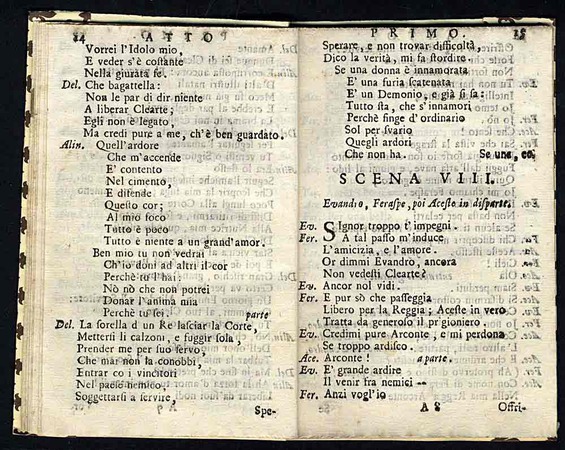 14 ATTO
Vorrei l'Idolo mio,
E veder s'è costante
Nella giurata fe.
Del. Che bagattella:
Non le par di dir niente
A liberar Clearte;
Egli non è legato,
Ma credi pure a me, ch'è ben guardato.
Alin. Quell'ardore
Che m'accende
E' contento
Nel cimento,
E difende
Questo cor;
Al mio foco
Tutto è poco
Tutto è niente a un grand'amor.
Ben mio tu non vedrai
Ch'io doni ad altri il cor
Perchè tu l'hai:
Nò nò che non potrei
Donar l'anima mia
Perchè tu sei. parte
Del. La sorella d'un Re lasciar la Corte,
Mettersi li calzoni, e fuggir sola,
Prender me per suo servo,
Che mai non la conobbi,
Entrar co i vincitori
Nel paese nemico,
Soggettarsi a servire,
Spe-
PRIMO. 15
Sperare, e non trovar difficoltà,
Dico la verità, mi fa stordire.
Se una donna è innamorata
E' una furia scatenata
E' un Demonio, e già si sa:
Tutto sta, che s'innamori
Perchè finge d'ordinario
Sol per svario
Quegli ardori
Che non ha. Se una, ec.
SCENA VIII.
Evandro, Feraspe, poi Aceste in disparte.
Ev. SIgnor troppo t'impegni.
Fer. A tal passo m'induce
L'amicizia, e l'amore.
Or dimmi Evandro, ancora
Non vedesti Clearte?
Ev. Ancor nol vidi.
Fer. E pur sò che passeggia
Libero per la Reggia; Aceste in vero
Tratta da generoso il prigioniero.
Ev. Credimi pure Arconte; e mi perdona
Se troppo ardisco.
Ace. Arconte! a parte.
Ev. E' grande ardire
Il venir fra nemici --
Fer. Anzi vogl'io
A 8 Offri-